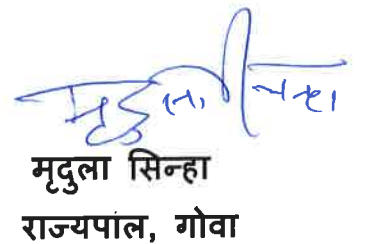 मृदुला सिन्हा
मृदुला सिन्हा
राज्यपाल, गोवा